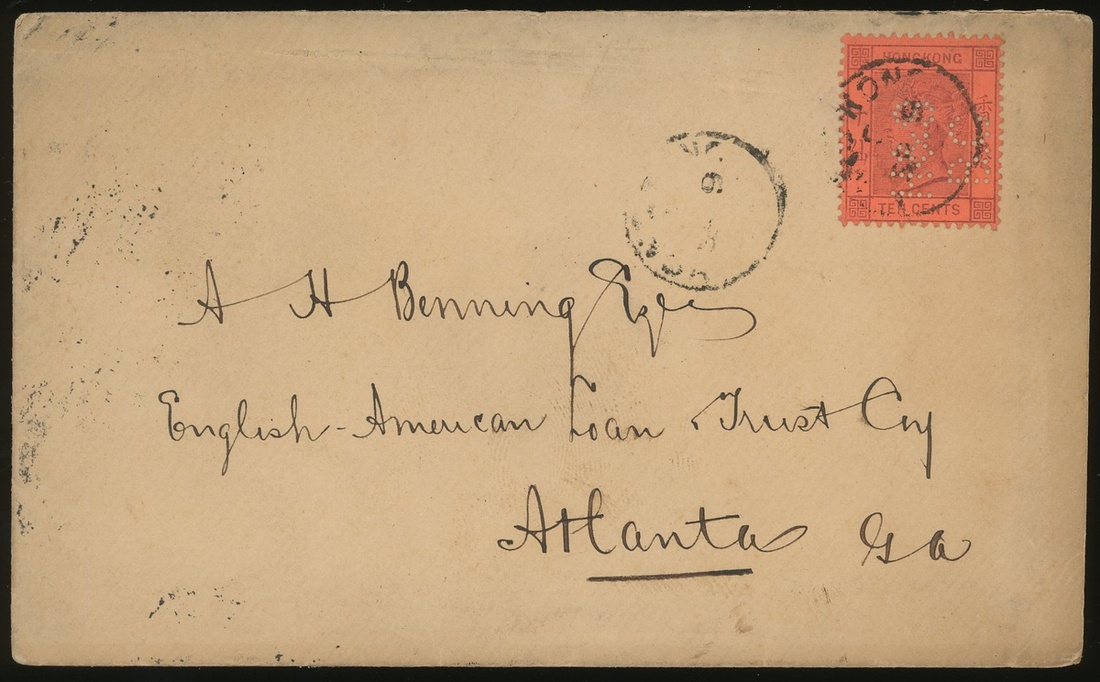 HONGKONG
TEN CENTS
A H Benning Esqre
English-American Loan Trust Coy
Atlanta Ga